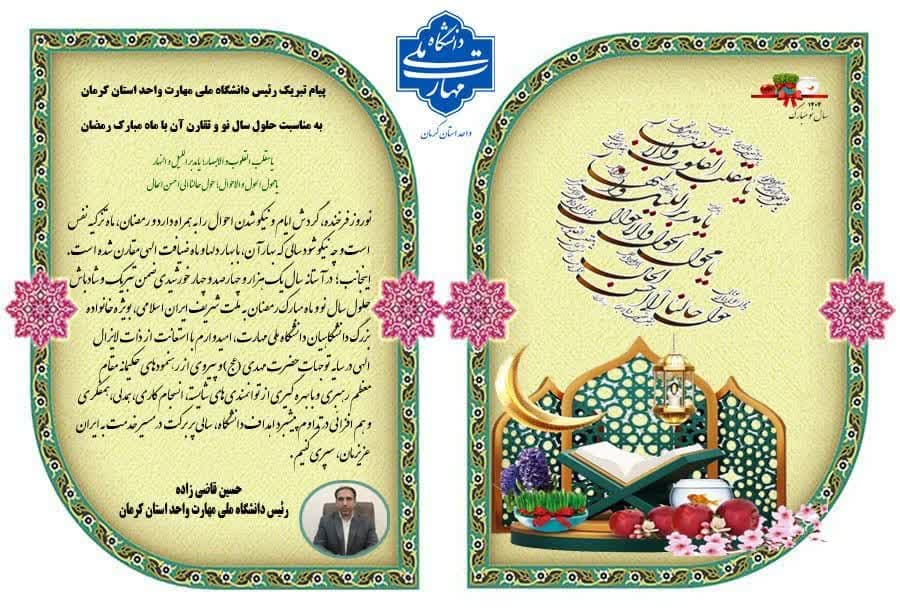 دانشگاه ملی مهارت
واحد استان کرمان
پیام تبریک رئیس دانشگاه ملی مهارت واحد استان کرمان
به مناسبت حلول سال نو و تقارن آن با ماه مبارک رمضان
یا مقلب القلوب و الابصار؛ یا مدبر اللیل و النهار
یا محول الحول و الاحوال؛ حول حالنا الی احسن الحال
نوروز فرخنده، گردش ایام و نیکو شدن احوال را به همراه دارد و رمضان، ماه تزکیه نفس
است و چه نیکو شود سالی که بهار آن، با بهار دلها و ماه ضیافت الهی مقارن شده است.
اینجانب؛ در آستانه سال یک هزار و چهارصد و چهار خورشیدی ضمن تبریک و شادباش
حلول سال نو و ماه مبارک رمضان به ملت شریف ایران اسلامی، بویژه خانواده
بزرگ دانشگاهیان دانشگاه ملی مهارت، امیدوارم با استعانت از ذات لایزال
الهی در سایه توجهات حضرت مهدی (عج) و پیروی از رهنمودهای حکیمانه مقام
معظم رهبری و با بهره گیری از توانمندی های شایسته، انسجام کاری، همدلی، همفکری
و هم افزایی در تداوم پیشبرد اهداف دانشگاه، سالی پر برکت در مسیر خدمت به ایران
عزیزمان، سپری کنیم.
حسین قاضی زاده
رئیس دانشگاه ملی مهارت واحد استان کرمان
۱۴۰۴
سال نو مبارک
یا مقلب القلوب والابصار
یا مدبر اللیل والنهار
یا محول الحول والاحوال
حول حالنا الی احسن الحال